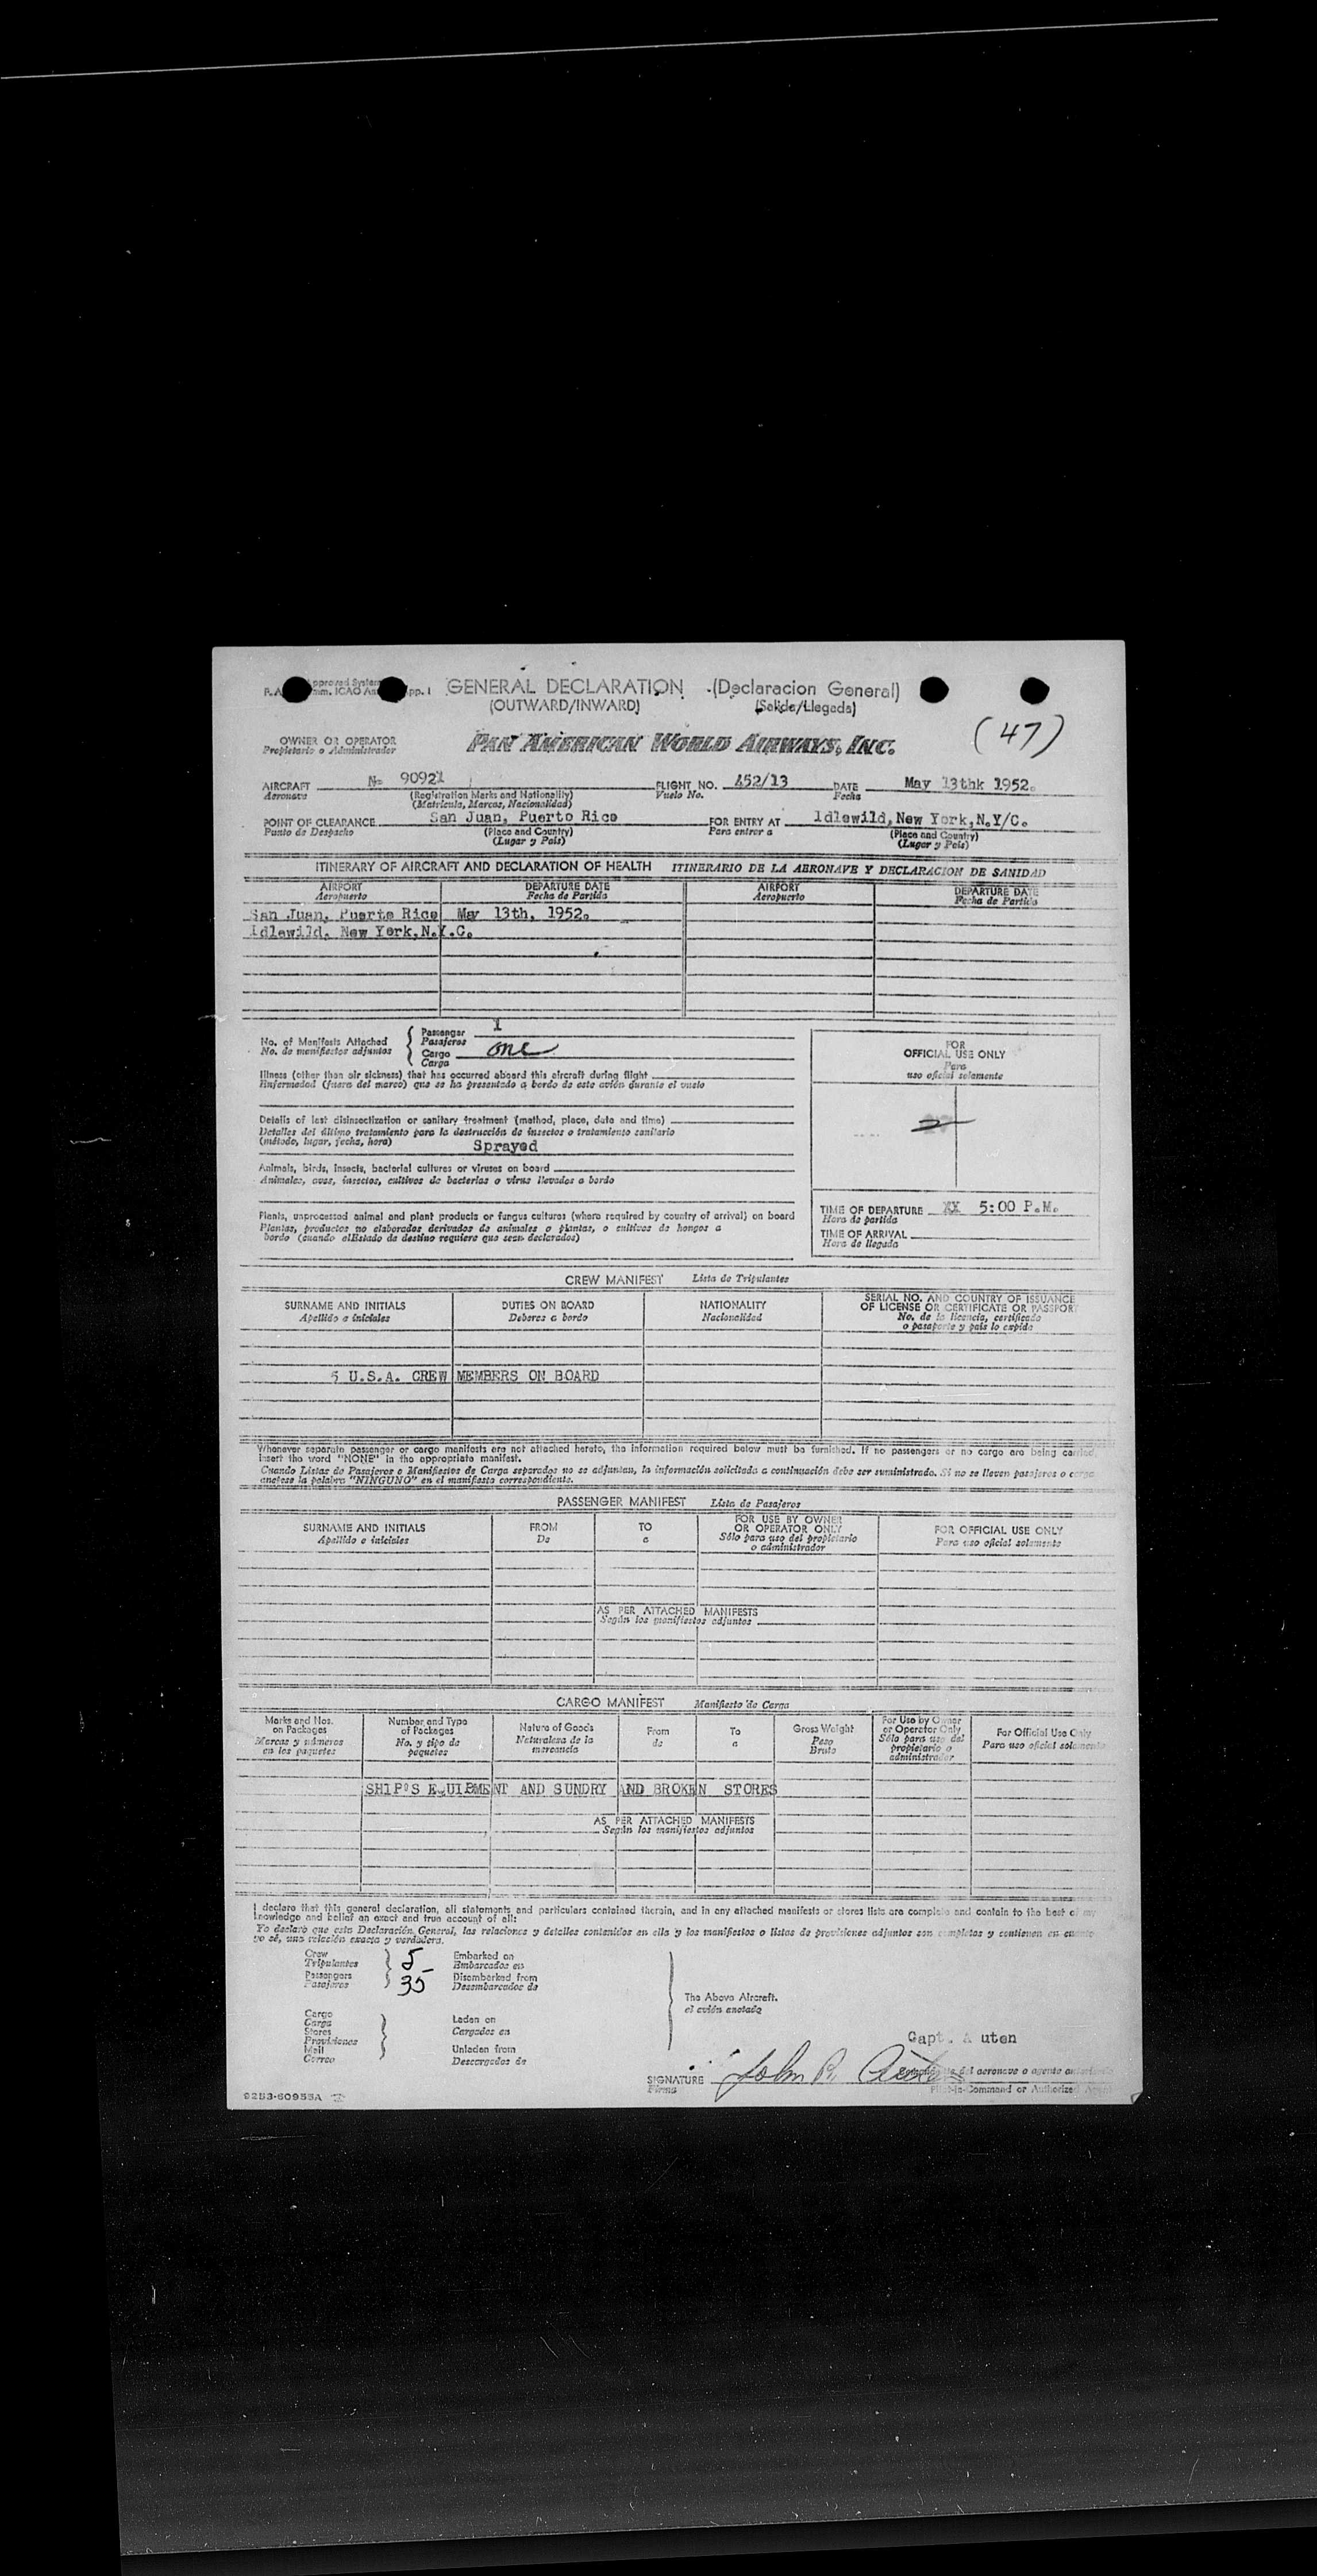 GENERAL DECLARATION (Declaracion General)
(OUTWARD/INWARD) (Salida/Llegada)
(47)
OWNER OR OPERATOR
Propietario o Administrador
PAN AMERICAN WORLD AIRWAYS, INC.
AIRCRAFT No 90921 FLIGHT NO. 452/13 DATE May 13thk 1952.
Aeronave (Registration Marks and Nationality) Vuelo No. Fecha
(Matricula, Marcas, Nacionalidad)
POINT OF CLEARANCE San Juan, Puerto Rico FOR ENTRY AT Idlewild, New York, N.Y/C.
Punto de Despacho (Place and Country) Para entrar a (Place and Country)
(Lugar y Pais) (Lugar y Pais)
ITINERARY OF AIRCRAFT AND DECLARATION OF HEALTH ITINERARIO DE LA AERONAVE Y DECLARACION DE SANIDAD
AIRPORT DEPARTURE DATE AIRPORT DEPARTURE DATE
Aeropuerto Fecha de Partida Aeropuerto Fecha de Partida
San Juan, Puerto Rico May 13th, 1952.
Idlewild, New York, N.Y.C.
No. of Manifests Attached Passenger 1
No. de manifiestos adjuntos Pasajeros
Cargo one
Carga
Illness (other than air sickness) that has occurred aboard this aircraft during flight
Enfermedad (fuera del mareo) que se ha presentado a bordo de este avión durante el vuelo
Details of last disinsectization or sanitary treatment (method, place, date and time)
Detalles del último tratamiento para la destrucción de insectos o tratamiento sanitario
(método, lugar, fecha, hora) Sprayed
Animals, birds, insects, bacterial cultures or viruses on board
Animales, aves, insectos, cultivos de bacterias o virus llevados a bordo
Plants, unprocessed animal and plant products or fungus cultures (where required by country of arrival) on board
Plantas, productos no elaborados derivados de animales o plantas, o cultivos de hongos a
bordo (cuando el Estado de destino requiere que sean declarados)
FOR
OFFICIAL USE ONLY
Para
uso oficial solamente
TIME OF DEPARTURE XX 5:00 P.M.
Hora de partida
TIME OF ARRIVAL
Hora de llegada
CREW MANIFEST Lista de Tripulantes
SURNAME AND INITIALS DUTIES ON BOARD NATIONALITY SERIAL NO. AND COUNTRY OF ISSUANCE
OF LICENSE OR CERTIFICATE OR PASSPORT
Apellido e iniciales Deberes a bordo Nacionalidad No. de la licencia, certificado
o pasaporte y pais lo expide
5 U.S.A. CREW MEMBERS ON BOARD
Whenever separate passenger or cargo manifests are not attached hereto, the information required below must be furnished. If no passengers or no cargo are being carried,
insert the word "NONE" in the appropriate manifest.
Cuando Listas de Pasajeros o Manifiestos de Carga separados no se adjuntan, la información solicitada a continuación debe ser suministrada. Si no se lleven pasajeros o carga
anótese la palabra "NINGUNO" en el manifiesto correspondiente.
PASSENGER MANIFEST Lista de Pasajeros
SURNAME AND INITIALS FROM TO FOR USE BY OWNER
OR OPERATOR ONLY FOR OFFICIAL USE ONLY
Apellido e iniciales De a Sólo para uso del propietario
o administrador Para uso oficial solamente
AS PER ATTACHED MANIFESTS
Según los manifiestos adjuntos
CARGO MANIFEST Manifiesto de Carga
Marks and Nos.
on Packages
Marcas y números
en los paquetes
Number and Type
of Packages
No. y tipo de
paquetes
Nature of Goods
Naturaleza de la
mercancia
From
de
To
a
Gross Weight
Peso
Bruto
For Use by Owner
or Operator Only
Sólo para uso del
propietario o
administrador
For Official Use Only
Para uso oficial solamente
SHIP'S EQUIPMENT AND SUNDRY AND BROKEN STORES
AS PER ATTACHED MANIFESTS
Según los manifiestos adjuntos
I declare that this general declaration, all statements and particulars contained therein, and in any attached manifests or stores lists are complete and contain to the best of my
knowledge and belief an exact and true account of all:
Yo declaro que esta Declaración General, las relaciones y detalles contenidos en ella y los manifiestos o listas de provisiones adjuntos son completas y contienen en cuanto
yo sé, una relación exacta y verdadera.
Crew 5 Embarked on
Tripulantes Embarcados en
Passengers 35 Disembarked from
Pasajeros Desembarcados de
The Above Aircraft.
el avión anotado
Cargo
Carga Laden on
Stores Cargados en
Provisiones
Mail Unladen from
Correo Descargados de
Capt. A uten
SIGNATURE John R. Auten
Firma
del aeronave o agente autorizado
Pilot-in-Command or Authorized Agent
9253-60955A